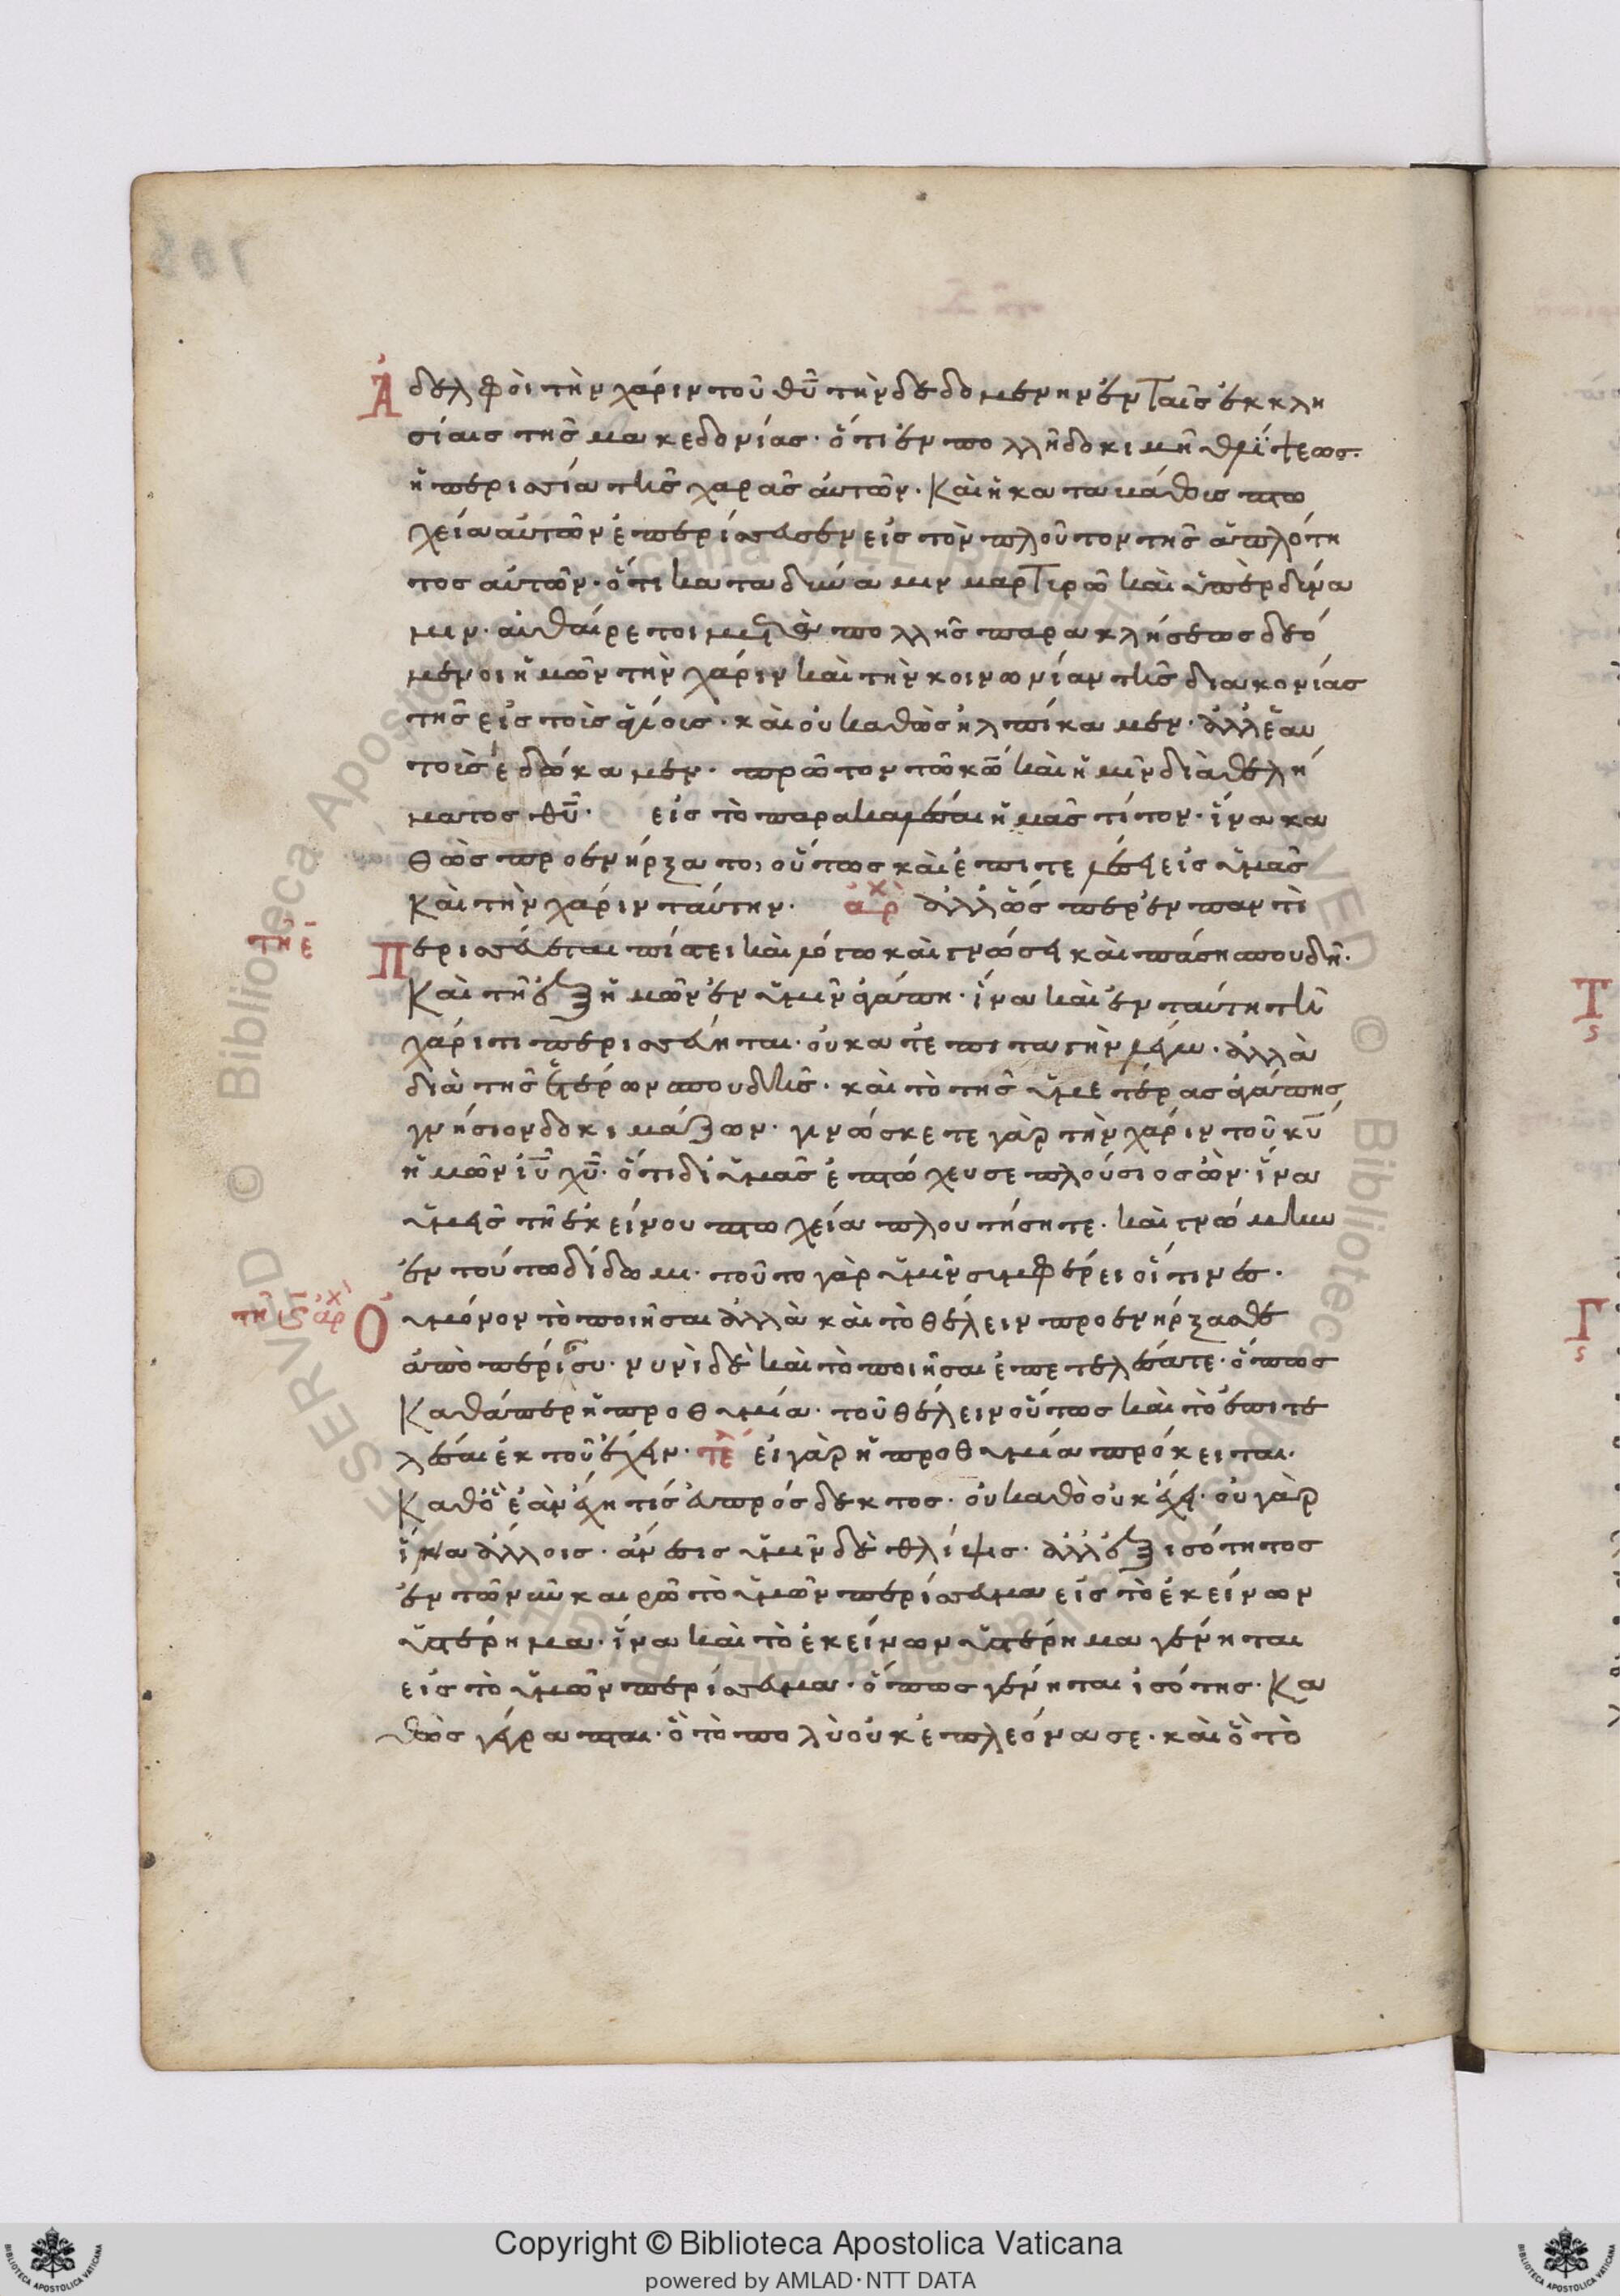 Ἀδελφοὶ τὴν χάριν τοῦ θυ̅ τὴν δεδομένην ἐν ταῖς ἐκκλη
σίαις τῆς μακεδονίας· ὅτι ἐν πολλῆ δοκιμῆ θλίψεως·
ἡ περισσεία τῆς χαρᾶς αὐτῶν· Καὶ ἡ κατα βάθους πτω
χεία αὐτῶν ἐπερίσσευσεν εἰς τὸν πλοῦτον τῆς ἁπλότη
τος αὐτῶν· ὅτι κατα δύναμιν μαρτυρῶ καὶ ὑπὲρ δύνα
μιν· αὐθαίρετοι μετὰ πολλῆς παρακλήσεως δεό
μενοι ἡμῶν τὴν χάριν καὶ τὴν κοινωνίαν τῆς διακονίας
τῆς εἰς τοὺς ἁγίους· καὶ οὐ καθὼς ἠλπίκαμεν· ἀλλ' ἑαυ
τοὺς ἐδώκαμεν· πρῶτον τῶ κω̅ καὶ ἡμῖν διὰ θελή
ματος θυ̅· εἰς τὸ παρακαλέσαι ἡμᾶς τίτον· ἵνα κα
θὼς προενήρξατο, οὕτως καὶ ἐπιτελέσει εἰς ὑμᾶς
Καὶ τὴν χάριν ταύτην· ἀρχ ἀλλ' ὥσπερ ἐν παντὶ
τῆ ε̅ Περισσεύεται πίστει καὶ λόγω καὶ γνώσει καὶ πάση σπουδῆ·
Καὶ τῆ ἐξ ἡμῶν ἐν ὑμῖν ἀγάπη· ἵνα καὶ ἐν ταύτη τῆ
χάριτι περισσεύηται· οὐ κατ' ἐπιταγὴν λέγω· ἀλλὰ
διὰ τῆς ἑτέρων σπουδῆς· καὶ τὸ τῆς ὑμετέρας ἀγάπης
γνήσιον δοκιμάζων· γινώσκετε γὰρ τὴν χάριν τοῦ κυ̅
ἡμῶν ιυ̅ χυ̅· ὅτι δι' ὑμᾶς ἐπτώχευσε πλούσιος ὢν· ἵνα
ὑμεῖς τῆ ἐκείνου πτωχεία πλουτήσητε· καὶ γνώμην
ἐν τούτω δίδωμι· τοῦτο γὰρ ὑμῖν συμφέρει οἵτινες·
τῆ ϛ̅ ἀρχ Οὐ μόνον τὸ ποιῆσαι ἀλλὰ καὶ τὸ θέλειν προενήρξασθε
ἀπὸ πέρισυ· νυνὶ δὲ καὶ τὸ ποιῆσαι ἐπετελέσατε· ὅπως
Καθάπερ ἡ προθυμία· τοῦ θέλειν οὕτως καὶ τὸ ἐπιτε
λέσαι ἐκ τοῦ ἔχειν· τε εἰ γὰρ ἡ προθυμία πρόκειται·
Καθὸ ἐὰν ἔχη τίς εὐπρόσδεκτος· οὐ καθὸ οὐκ ἔχει· οὐ γὰρ
ἵνα ἄλλοις· ἄνεσις ὑμῖν δὲ θλίψις· ἀλλ' ἐξ ισότητος
ἐν τῶ νῦν καιρῶ τὸ ὑμῶν περίσσευμα εἰς τὸ ἐκείνων
ὑστέρημα· ἵνα καὶ τὸ ἐκείνων ὑστέρημα γένηται
εἰς τὸ ὑμῶν περίσσευμα· ὅπως γένηται ἰσότης· Κα
θὼς γέγραπται· ὁ τὸ πολὺ οὐκ ἐπλεόνασε· καὶ ὁ τὸ
Copyright © Biblioteca Apostolica Vaticana
powered by AMLAD·NTT DATA